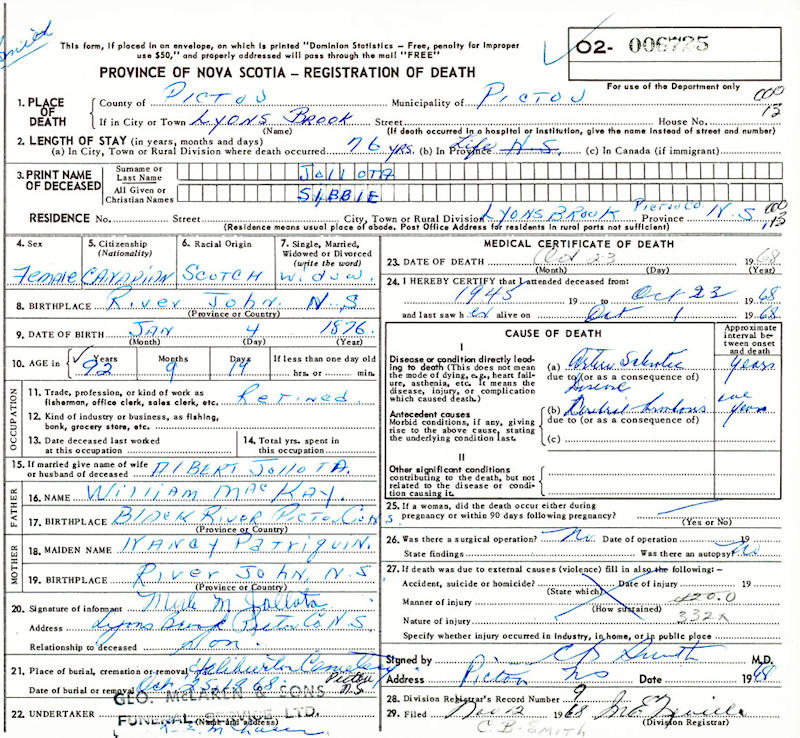 This form, if placed in an envelope, on which is printed "Dominion Statistics – Free, penalty for improper
use $50," and properly addressed will pass through the mail "FREE"
O2- 006725
PROVINCE OF NOVA SCOTIA – REGISTRATION OF DEATH
For use of the Department only
1. PLACE OF DEATH
County of PICTOU Municipality of PICTOU
If in City or Town LYONS BROOK Street House No. 13
(Name) (If death occurred in a hospital or institution, give the name instead of street and number)
2. LENGTH OF STAY (in years, months and days)
(a) In City, Town or Rural Division where death occurred 76 YRS. (b) In Province Life N.S. (c) In Canada (if immigrant)
3. PRINT NAME OF DECEASED
Surname or Last Name JOLLOTA
All Given or Christian Names SIBBIE
RESIDENCE No. Street City, Town or Rural Division LYONS BROOK PICTOU CO Province N.S. 13
(Residence means usual place of abode. Post Office Address for residents in rural parts not sufficient)
4. Sex FEMALE
5. Citizenship (Nationality) CANADIAN
6. Racial Origin SCOTCH
7. Single, Married, Widowed or Divorced (write the word) WIDOW.
8. BIRTHPLACE River John. N.S
(Province or Country)
9. DATE OF BIRTH JAN 4 1876
(Month) (Day) (Year)
10. AGE in Years 92 Months 9 Days 19 If less than one day old
hrs. or min.
OCCUPATION
11. Trade, profession or kind of work as fishermen, office clerk, sales clerk, etc. Retired.
12. Kind of industry or business, as fishing, bank, grocery store, etc.
13. Date deceased last worked at this occupation
14. Total yrs. spent in this occupation
15. If married give name of wife or husband of deceased ALBERT JOLLOTA.
FATHER
16. NAME WILLIAM MACKAY.
17. BIRTHPLACE BLACK RIVER PICTOU CO N.S
(Province or Country)
MOTHER
18. MAIDEN NAME NANCY PATRIQUIN.
19. BIRTHPLACE RIVER JOHN, N.S
(Province or Country)
20. Signature of informant M. Jollota
Address Lyons Brook Pictou Co N.S.
Relationship to deceased son.
21. Place of burial, cremation or removal Haliburton Cemetery
Pictou N.S
Date of burial or removal Oct 25 1968
22. UNDERTAKER GEO. McLAREN & SONS
FUNERAL SERVICE LTD.
(Name and address)
MEDICAL CERTIFICATE OF DEATH
23. DATE OF DEATH Oct 23 1968
(Month) (Day) (Year)
24. I HEREBY CERTIFY that I attended deceased from:
1945 19 to Oct 23 1968
and last saw her alive on Oct 1 1968
CAUSE OF DEATH
Approximate interval between onset and death
I
Disease or condition directly leading to death (This does not mean the mode of dying, e.g., heart failure, asthenia, etc. It means the disease, injury, or complication which caused death.)
(a) Arterio Sclerotic years
due to (or as a consequence of)
Disease
Antecedent causes
Morbid conditions, if any, giving rise to the above cause, stating the underlying condition last.
(b) Cerebral Thrombosis years
due to (or as a consequence of)
(c)
II
Other significant conditions
contributing to the death, but not related to the disease or condition causing it.
25. If a woman, did the death occur either during pregnancy or within 90 days following pregnancy?
(Yes or No)
26. Was there a surgical operation? No. Date of operation 19
State findings Was there an autopsy? No
27. If death was due to external causes (violence) fill in also the following:–
Accident, suicide or homicide? Date of injury 19
(State which)
Manner of injury 420.0
(How sustained)
Nature of injury 332X
Specify whether injury occurred in industry, in home, or in public place
Signed by C B Smith M.D.
Address Pictou NS Date 1968
28. Division Registrar's Record Number 9
29. Filed Nov 12 1968
(Division Registrar)
C. B. SMITH